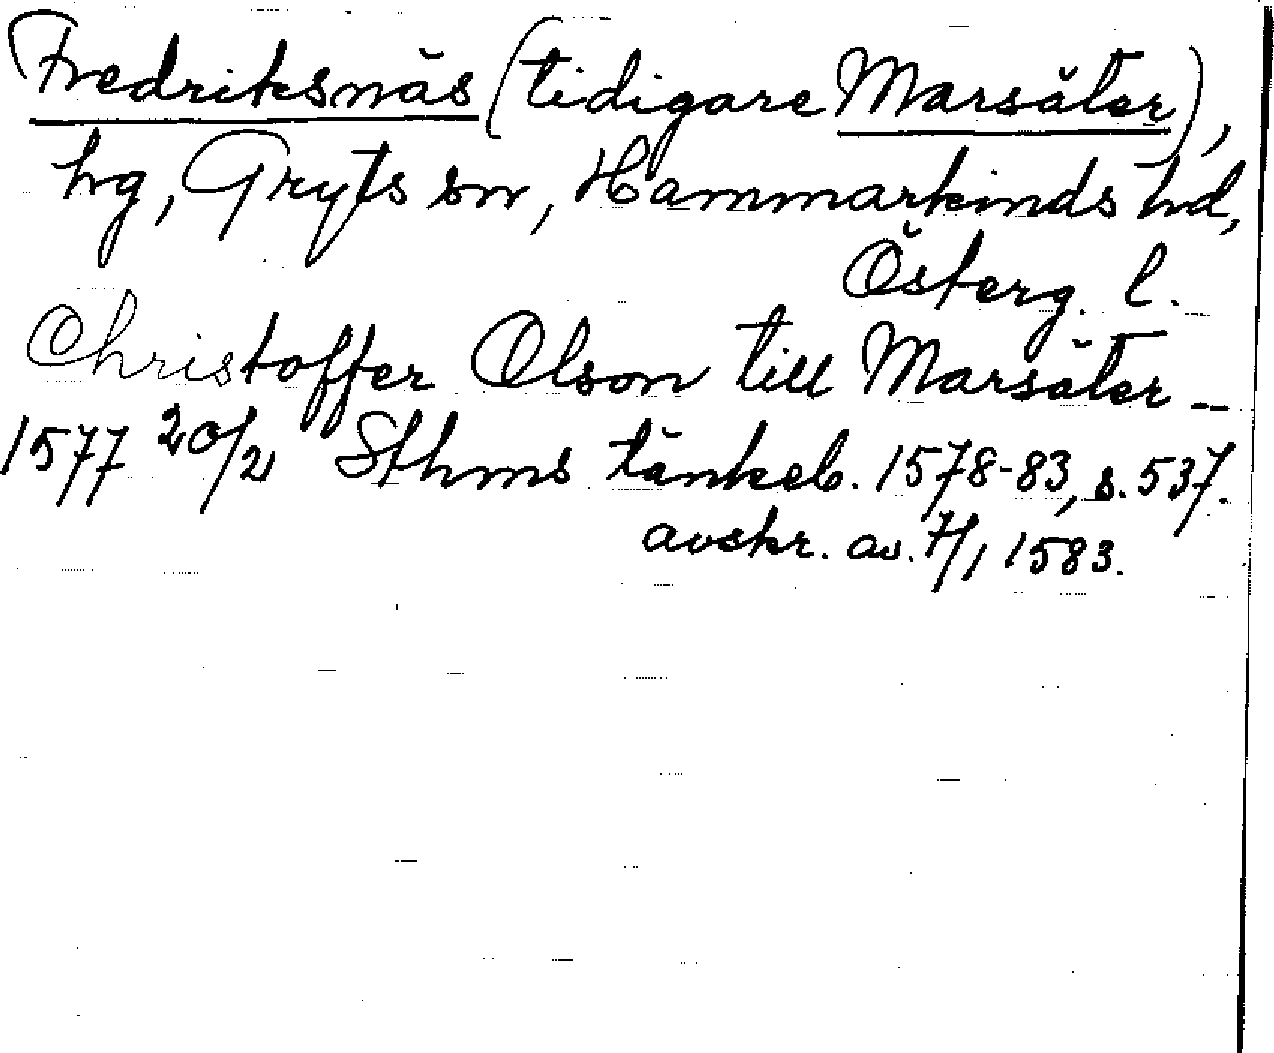 Fredriksnäs (tidigare Marsäter),
hg, Gryts sn, Hammarkinds hd,
Österg. l.
Christoffer Olson till Marsäter –
1577 20/2 Sthms tänkeb. 1578-83, s. 537.
avskr. av. 7/1 1583.